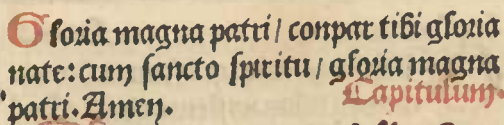 Gloria magna patri / conpar tibi gloria
nate: cum sancto spiritu / gloria magna
patri. Amen.
Capitulum.